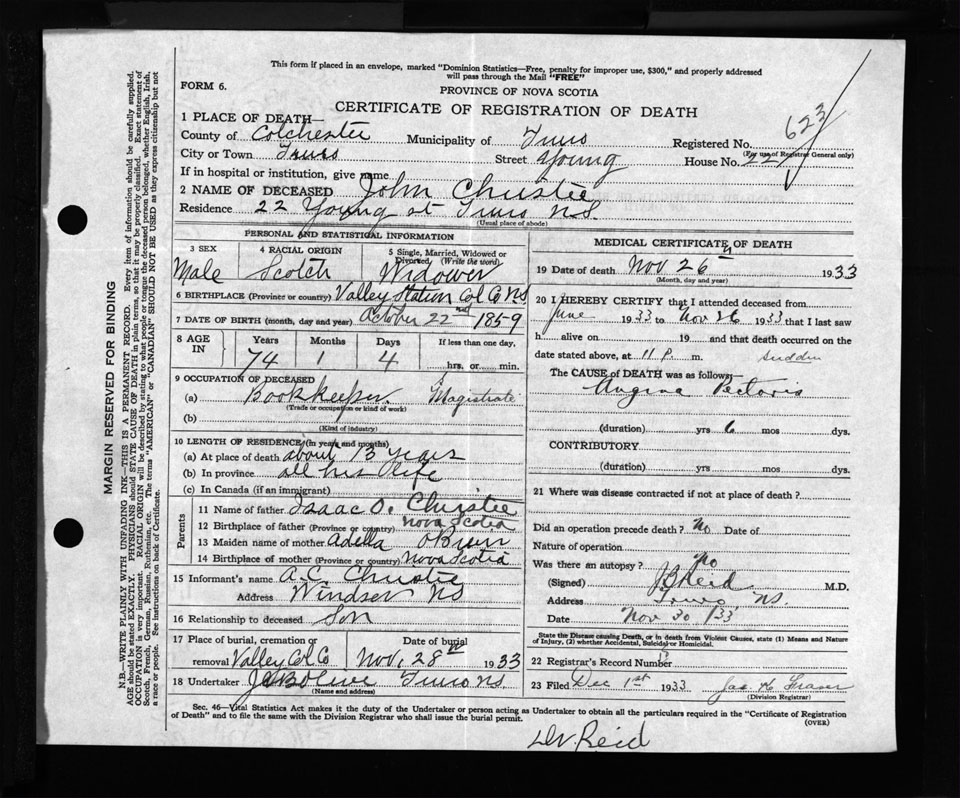 This form if placed in an envelope, marked "Dominion Statistics—Free, penalty for improper use, $300," and properly addressed
will pass through the Mail "FREE"
FORM 6.
PROVINCE OF NOVA SCOTIA
CERTIFICATE OF REGISTRATION OF DEATH
623
1 PLACE OF DEATH—
County of Colchester Municipality of Truro Registered No.
(For use of Registrar General only)
City or Town Truro Street Young House No. 22
If in hospital or institution, give name
2 NAME OF DECEASED John Christie
Residence 22 Young st Truro N.S.
(Usual place of abode)
PERSONAL AND STATISTICAL INFORMATION
3 SEX 4 RACIAL ORIGIN 5 Single, Married, Widowed or Divorced (Write the word)
Male Scotch Widower
6 BIRTHPLACE (Province or country) Valley Station Col Co NS
7 DATE OF BIRTH (month, day and year) October 22nd 1859
8 AGE IN Years Months Days If less than one day,
74 1 4 hrs. or min.
9 OCCUPATION OF DECEASED
(a) Bookkeeper Magistrate
(Trade or occupation or kind of work)
(b)
(Kind of industry)
10 LENGTH OF RESIDENCE (in years and months)
(a) At place of death about 13 years
(b) In province all his life
(c) In Canada (if an immigrant)
Parents
11 Name of father Isaac O. Christie
12 Birthplace of father (Province or country) Nova Scotia
13 Maiden name of mother Adella OBrien
14 Birthplace of mother (Province or country) Nova Scotia
15 Informant's name A.C. Christie
Address Windsor NS
16 Relationship to deceased Son
17 Place of burial, cremation or removal Valley Col Co
Date of burial Nov. 28th 1933
18 Undertaker Truro N.S.
(Name and address)
MEDICAL CERTIFICATE OF DEATH
19 Date of death Nov 26th 1933
(Month, day and year)
20 I HEREBY CERTIFY that I attended deceased from
June 1933 to Nov 26 1933 that I last saw
h alive on 19 and that death occurred on the
date stated above, at 11 P. m. sudden
The CAUSE of DEATH was as follows:
Angina Pectoris
(duration) yrs 6 mos dys.
CONTRIBUTORY
(duration) yrs mos dys.
21 Where was disease contracted if not at place of death?
Did an operation precede death? No Date of
Nature of operation
Was there an autopsy? No
(Signed) Reid M.D.
Address Truro NS.
Date Nov 30 /33
State the Disease causing Death, or in death from Violent Causes, state (1) Means and Nature
of Injury, (2) whether Accidental, Suicidal or Homicidal.
22 Registrar's Record Number
23 Filed Dec 1st 1933 Jas K Fraser
(Division Registrar)
Sec. 46—Vital Statistics Act makes it the duty of the Undertaker or person acting as Undertaker to obtain all the particulars required in the "Certificate of Registration
of Death" and to file the same with the Division Registrar who shall issue the burial permit.
(OVER)
Dr. Reid
MARGIN RESERVED FOR BINDING
N.B.—WRITE PLAINLY WITH UNFADING INK—THIS IS A PERMANENT RECORD. Every item of information should be carefully supplied.
AGE should be stated EXACTLY. PHYSICIANS should STATE CAUSE OF DEATH in plain terms, so that it may be properly classified. Exact statement of
OCCUPATION is very important. RACIAL ORIGIN will be described by stating to what people or tongue the deceased person belonged, whether English, Irish,
Scotch, French, German, Russian, Ruthenian, etc. The terms "AMERICAN" or "CANADIAN" SHOULD NOT BE USED as they express citizenship but not
a race or people. See instructions on back of Certificate.